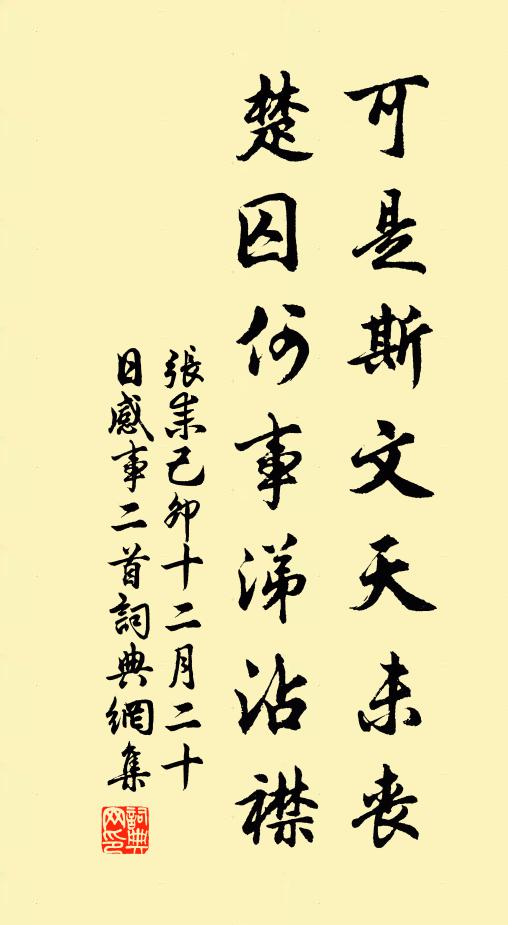 可是斯文天未丧
楚囚何事涕沾襟
張耒己卯十二月二十
日感事二首詞典網集
詞典網印